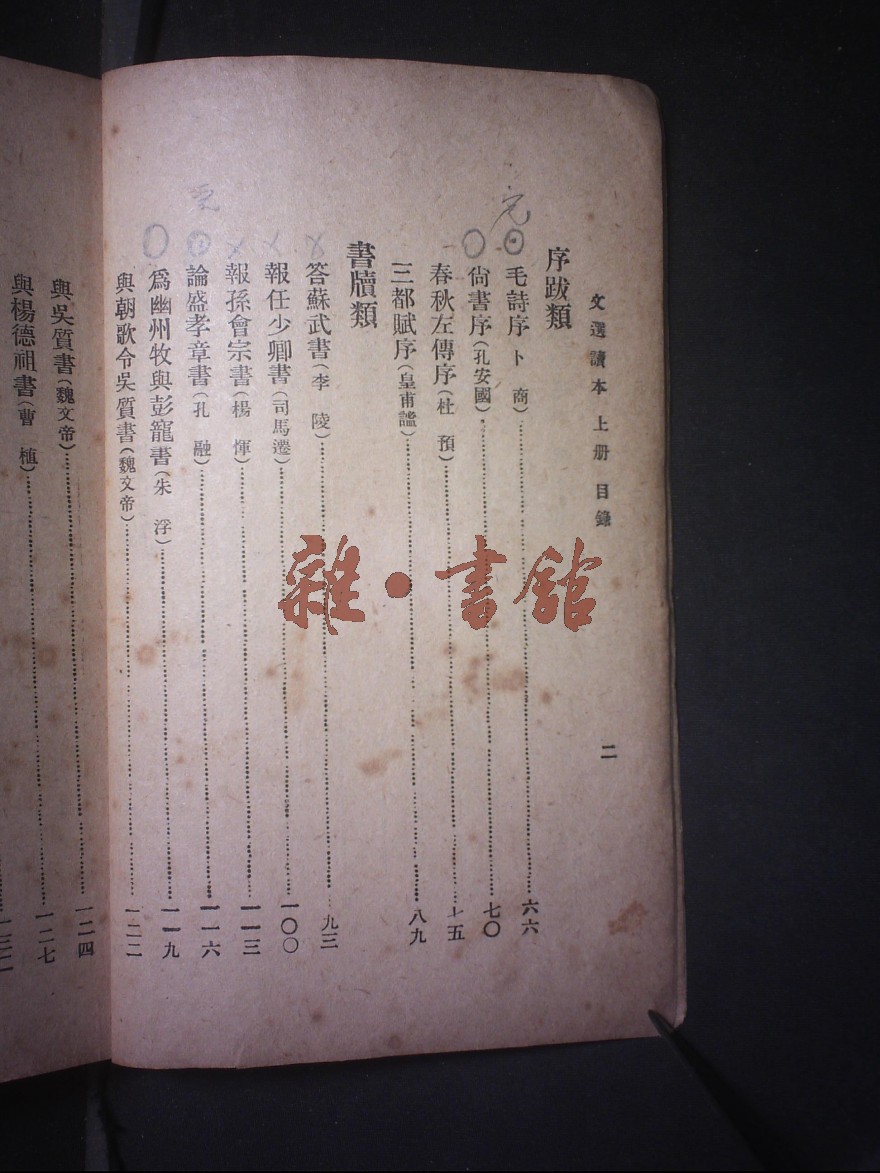 文選讀本 上册 目錄
二
序跋類
毛詩序(卜 商)……六六
尙書序(孔安國)……七〇
春秋左傳序(杜 預)……七五
三都賦序(皇甫謐)……八九
書牘類
答蘇武書(李 陵)……九三
報任少卿書(司馬遷)……一〇〇
報孫會宗書(楊 惲)……一一三
論盛孝章書(孔 融)……一一六
爲幽州牧與彭寵書(朱 浮)……一一九
與朝歌令吳質書(魏文帝)……一二二
與吳質書(魏文帝)……一二四
與楊德祖書(曹 植)……一二七
完
雜·書館